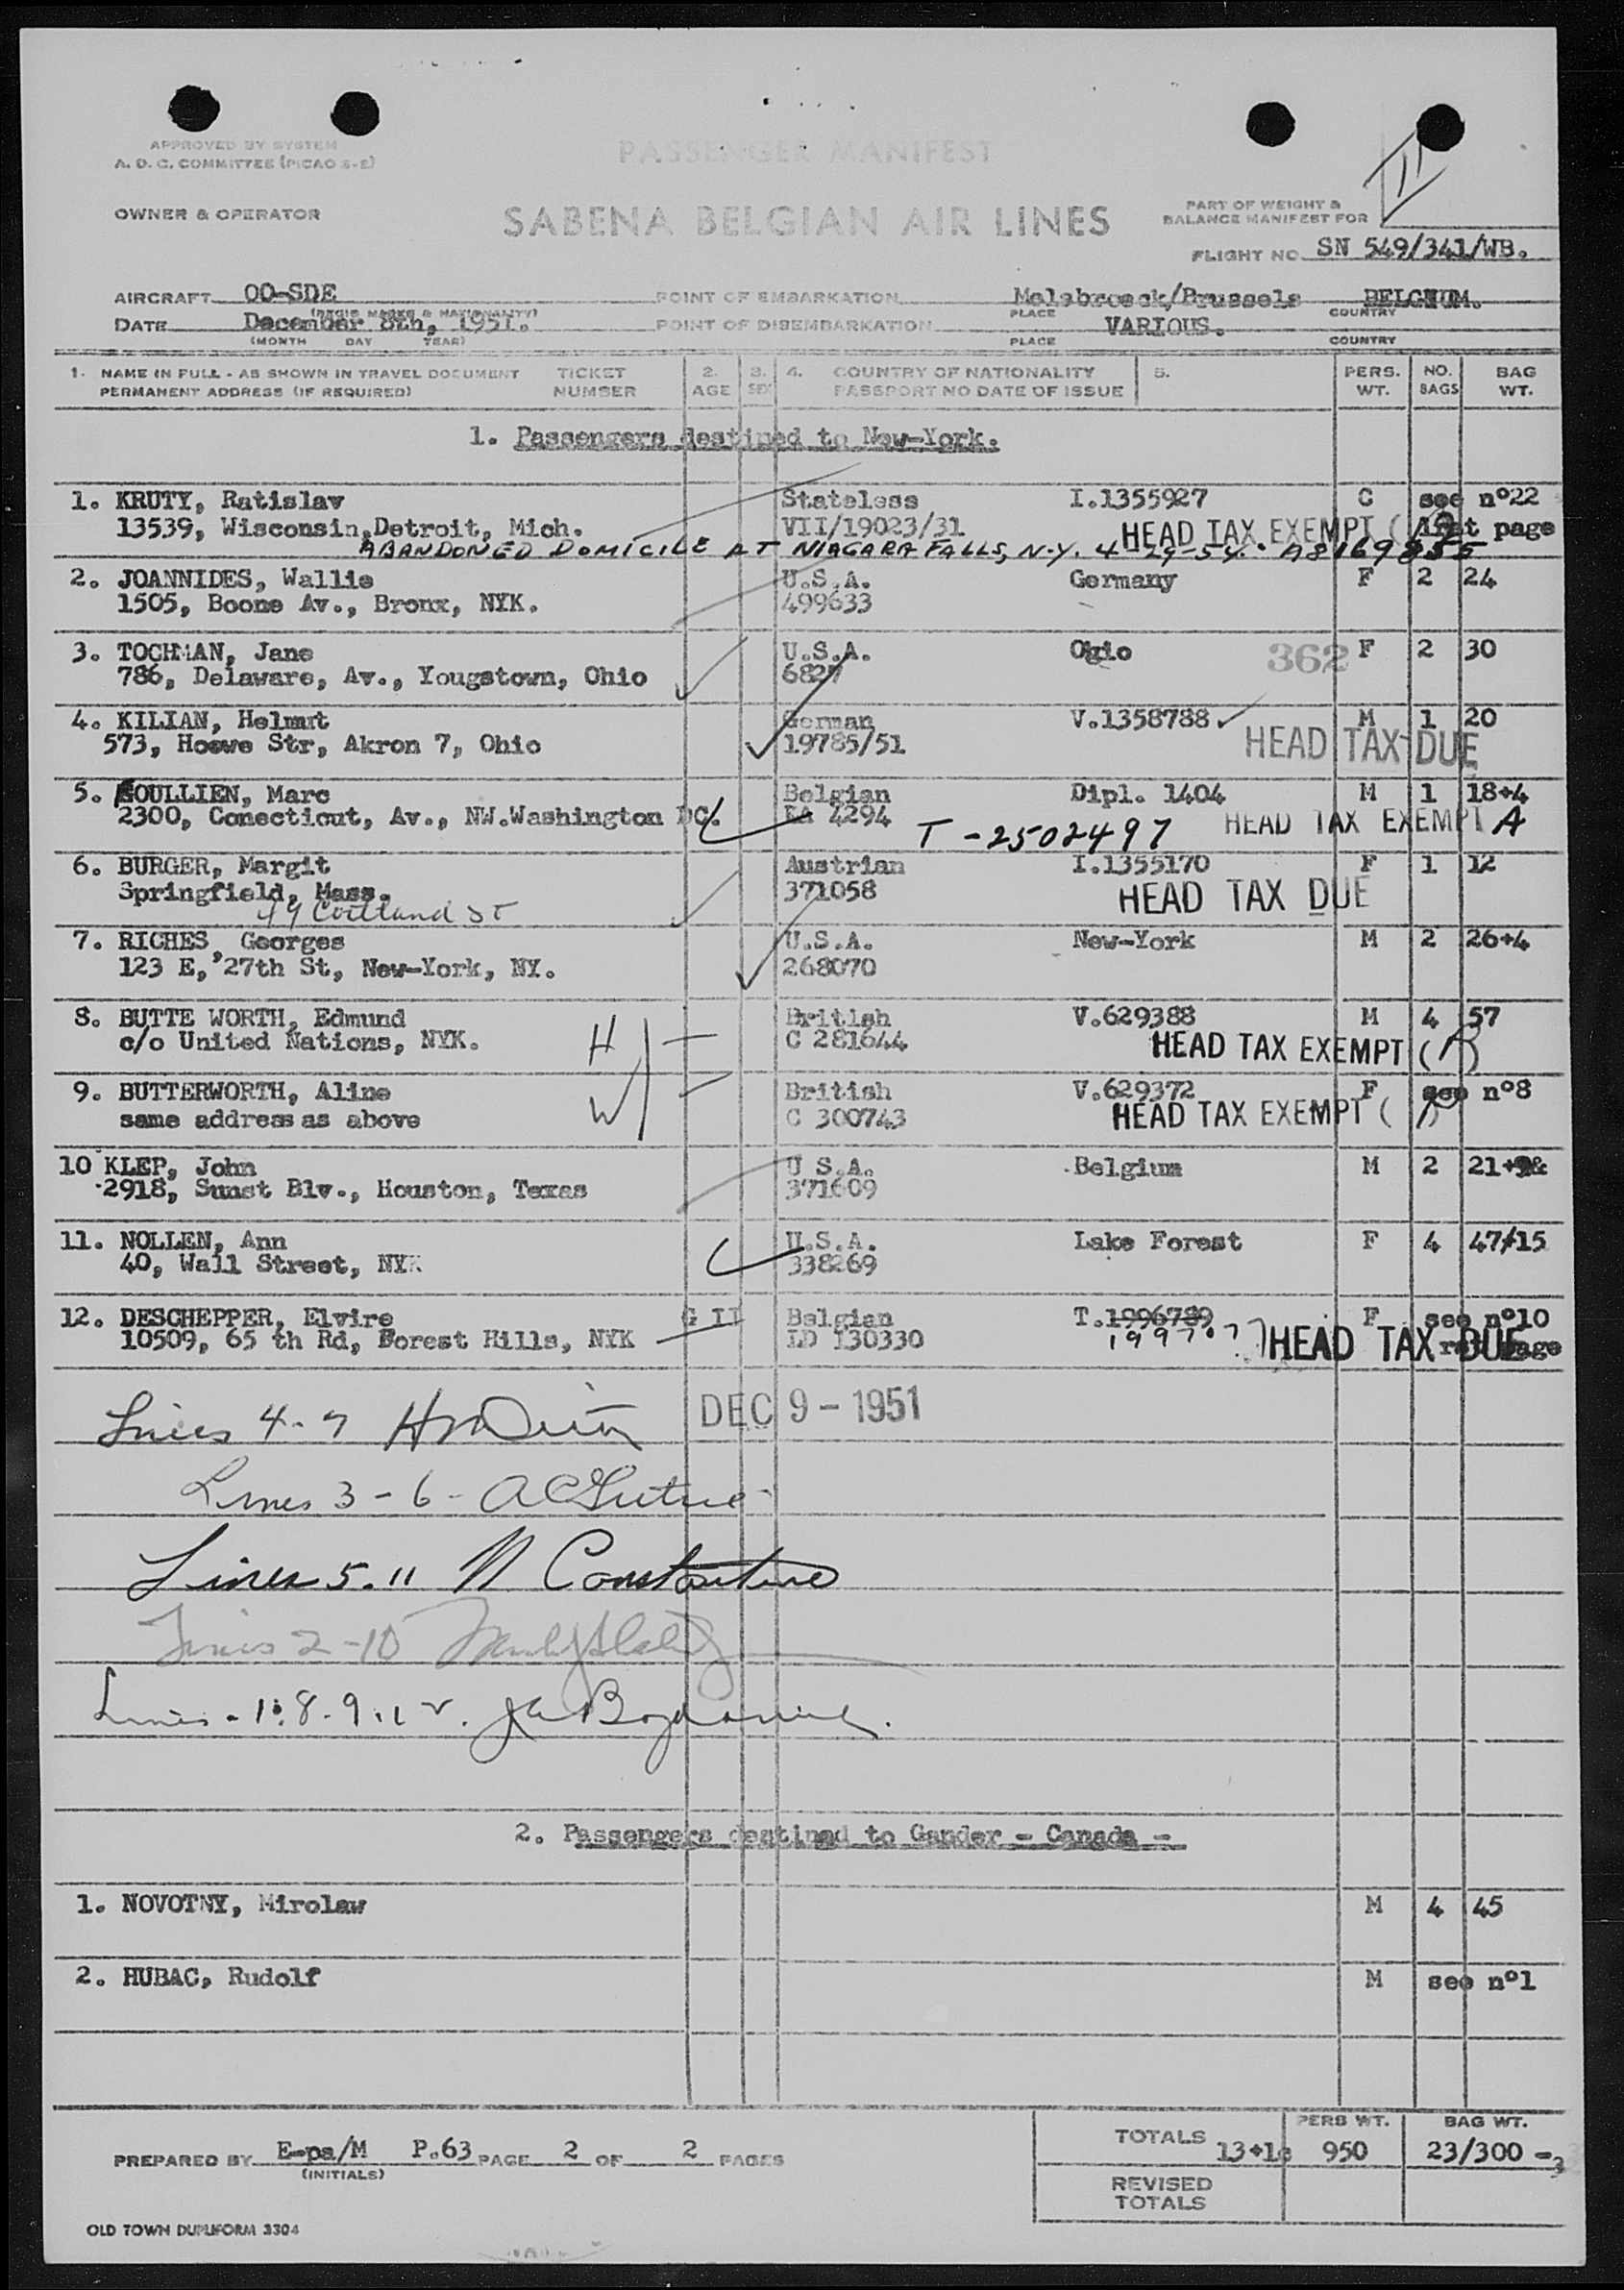 APPROVED BY SYSTEM
A. D. C. COMMITTEE (PICAO S-2)
PASSENGER MANIFEST
OWNER & OPERATOR
SABENA BELGIAN AIR LINES
PART OF WEIGHT &
BALANCE MANIFEST FOR
11
FLIGHT NO. SN 549/341/WB.
AIRCRAFT OO-SDE
(REGIS MARKS & NATIONALITY)
POINT OF EMBARKATION Melsbroeck/Brussels BELGIUM.
PLACE COUNTRY
DATE December 8th, 1951.
(MONTH DAY YEAR)
POINT OF DISEMBARKATION VARIOUS.
PLACE COUNTRY
1. NAME IN FULL - AS SHOWN IN TRAVEL DOCUMENT TICKET 2. 3. 4. COUNTRY OF NATIONALITY 5. PERS. NO. BAG
PERMANENT ADDRESS (IF REQUIRED) NUMBER AGE SEX PASSPORT NO DATE OF ISSUE WT. BAGS WT.
1. Passengers destined to New-York.
1. KRUTY, Ratislav Stateless I.1355927 C see nº22
13539, Wisconsin,Detroit, Mich. VII/19023/31 HEAD TAX EXEMPT ( 1rst page
ABANDONED DOMICILE AT NIAGARA FALLS, N.Y. 4-29-54.
2. JOANNIDES, Wallie U.S.A. Germany F 2 24
1505, Boone Av., Bronx, NYK. 499633
3. TOCHMAN, Jane U.S.A. Ogio 362 F 2 30
786, Delaware, Av., Yougstown, Ohio 6827
4. KILIAN, Helmut German V.1358788 M 1 20
573, Howe Str, Akron 7, Ohio 19785/51 HEAD TAX DUE
5. GOULLIEN, Marc Belgian Dipl. 1404 M 1 18+4
2300, Conecticut, Av., NW.Washington DC. EA 4294 T-2502497 HEAD TAX EXEMPT A
6. BURGER, Margit Austrian I.1355170 F 1 12
Springfield, Mass. 371058 HEAD TAX DUE
49 Cortland St
7. RICHES, Georges U.S.A. New-York M 2 26+4
123 E, 27th St, New-York, NY. 268070
8. BUTTE WORTH, Edmund H British V.629388 M 4 57
c/o United Nations, NYK. C 281644 HEAD TAX EXEMPT (A)
9. BUTTERWORTH, Aline W British V.629372 F see nº8
same address as above C 300743 HEAD TAX EXEMPT (
10 KLEP, John U S.A. Belgium M 2
2918, Sunst Blv., Houston, Texas 371609
11. NOLLEN, Ann U.S.A. Lake Forest F 4 47/15
40, Wall Street, NYK 338269
12. DESCHEPPER, Elvire G II Belgian T.1996789 F see nº10
10509, 65 th Rd, Forest Hills, NYK LD 130330 HEAD TAX DUE
DEC 9 - 1951
Lines 4-7
Lines 3-6-
Lines 5.11 N Constantine
Lines 2-10
Lines - 1.8-9.12.
2. Passengers destined to Gander - Canada -
1. NOVOTNY, Mirolaw M 4 45
2. HUBAC, Rudolf M see nº1
PREPARED BY E-pa/M P.63 PAGE 2 OF 2 PAGES
(INITIALS)
PERS WT. BAG WT.
TOTALS 950 23/300
REVISED
TOTALS
OLD TOWN DUPLIFORM 3304